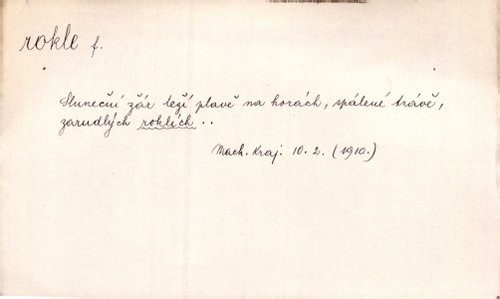 rokle f.
Sluneční žár leží plavě na horách, spálené trávě,
zarudlých roklích..
Mach. Kraj. 10. 2. (1910.)